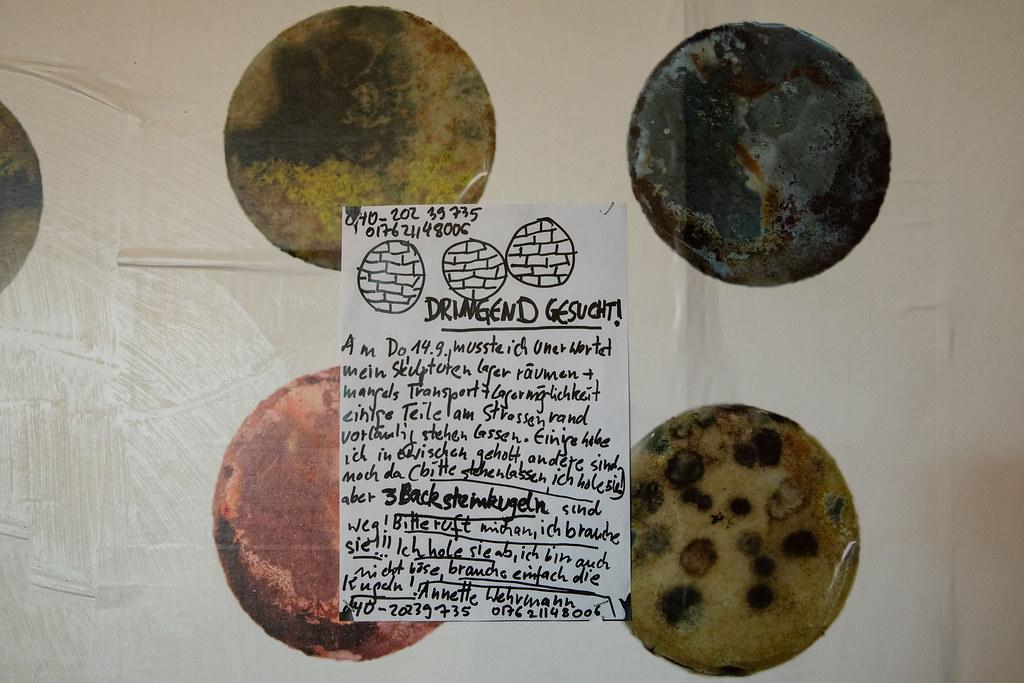 040-202 39 735
017621148006
DRINGEND GESUCHT!
Am Do, 14.9. musste ich unerwartet
mein Skulpturenlager räumen +
mangels Transport + Lagermöglichkeit
einige Teile am Strassenrand
vorläufig stehen lassen. Einige habe
ich inzwischen geholt, andere sind
noch da (bitte stehenlassen, ich hole sie)
aber 3 Backsteinkugeln sind
weg! Bitte ruft mich an, ich brauche
sie!!! Ich hole sie ab, ich bin auch
nicht böse, brauche einfach die
Kugeln! Annette Wehrmann
040-20239735 017621148006